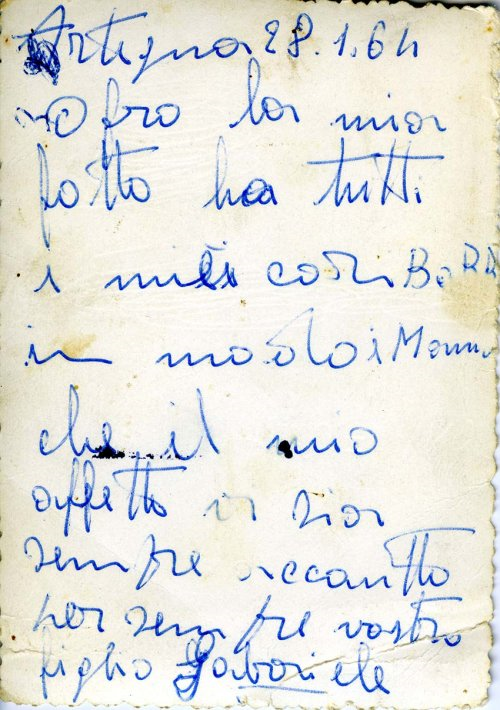 Artegna 28.1.64
Ofro la mia
fotto ha tutti
i miei cari
in modo
che il mio
affetto vi sia
sempre accantto
per sempre vostro
figlio Gabriele